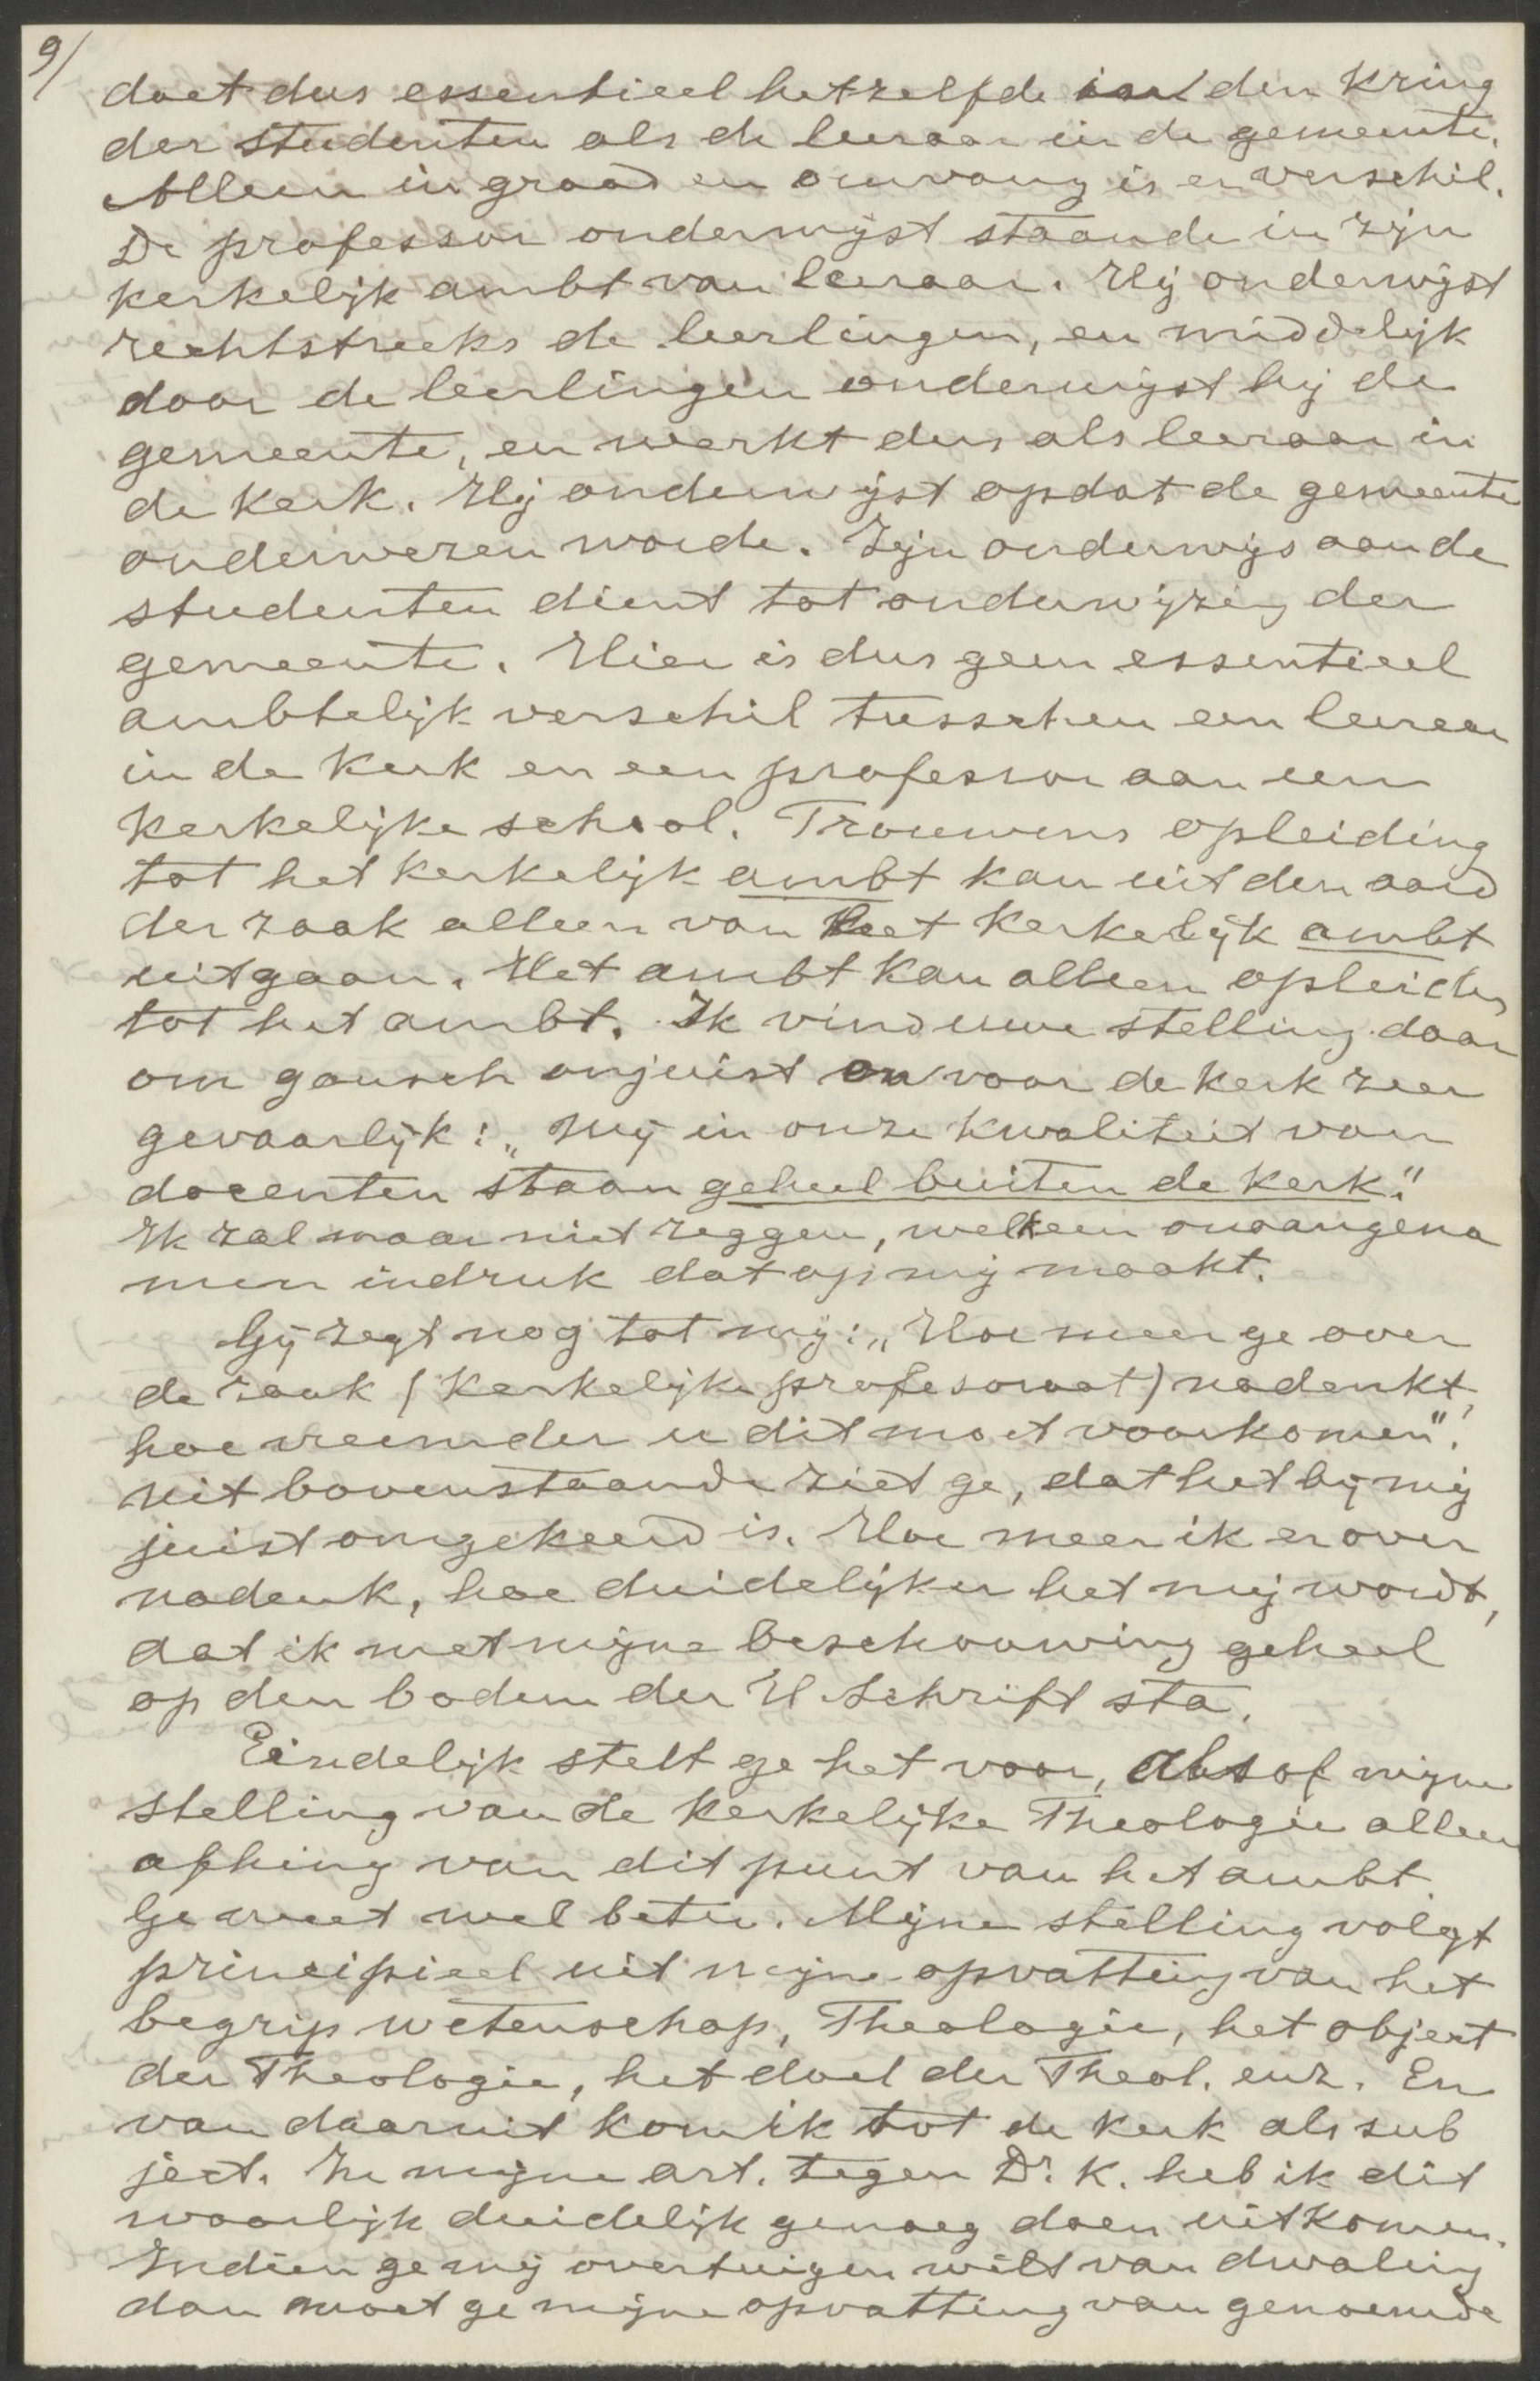 9/
doet dus essentieel hetzelfde in den Kring
der studenten als de leeraar in de gemeente.
Alleen in graad en omvang is er verschil.
De professor onderwijst staande in zijn
kerkelijk ambt van leeraar. Hij onderwijst
rechtstreeks de leerlingen, en middelijk
door de leerlingen onderwijst hij de
gemeente, en werkt dus als leeraar in
de Kerk. Hij onderwijst opdat de gemeente
onderwezen worde. Zijn onderwijs aan de
studenten dient tot onderwijzing der
gemeente. Hier is dus geen essentieel
ambtelijk verschil tusschen een leeraar
in de Kerk en een professor aan een
Kerkelijke school. Trouwens opleiding
tot het Kerkelijk ambt kan uit den aard
der zaak alleen van het Kerkelijk ambt
uitgaan. Het ambt kan alleen opleiden
tot het ambt. Ik vind uwe stelling daar
om gansch onjuist en voor de Kerk zeer
gevaarlijk: „Wij in onze Kwaliteit van
docenten staan geheel buiten de Kerk."
Ik zal maar niet zeggen, welk een onaangena
men indruk dat op mij maakt.
Gij zegt nog tot mij: „Hoe meer ge over
de zaak (Kerkelijke profesoraat) nadenkt,
hoe vreemder u dit moet voorkomen".
Uit bovenstaande ziet ge, dat het bij mij
juist omgekeerd is. Hoe meer ik er over
nadenk, hoe duidelijker het mij wordt,
dat ik met mijne beschouwing geheel
op den bodem der H. Schrift sta.
Eindelijk stelt ge het voor, alsof mijne
stelling van de Kerkelijke Theologie alleen
afhing van dit punt van het ambt.
Ge weet wel beter. Mijne stelling volgt
principieel uit mijne opvatting van het
begrip wetenschap, Theologie, het object
der Theologie, het doel der Theol. enz. En
van daaruit kom ik tot de Kerk als sub
ject. In mijne art. tegen Dr. K. heb ik dit
waarlijk duidelijk genoeg doen uitkomen.
Indien ge mij overtuigen wilt van dwaling
dan moet ge mijne opvatting van genoemde